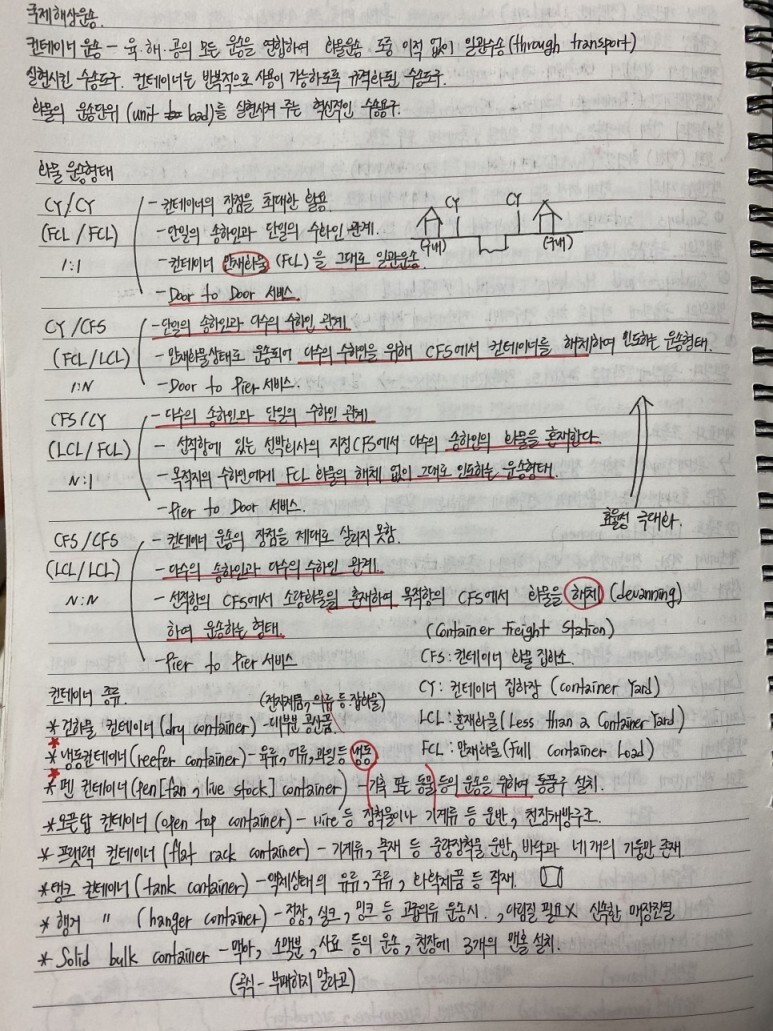 국제해상운송.
컨테이너 운송 - 육·해·공의 모든 운송을 연합하여 화물운송 도중 이적 없이 일관수송(through transport)
실현시킨 수송도구. 컨테이너는 반복적으로 사용이 가능하도록 규격화된 수송도구.
화물의 운송단위(unit load)를 실현시켜 주는 혁신적인 수송용구.
화물 운송형태
CY/CY - 컨테이너의 장점을 최대한 활용. CY CY
(FCL/FCL) - 단일의 송하인과 단일의 수하인 관계. (국내) (국내)
1:1 - 컨테이너 만재화물(FCL)을 그대로 일관운송.
- Door to Door 서비스.
CY/CFS - 단일의 송하인과 다수의 수하인 관계
(FCL/LCL) - 만재화물상태로 운송되어 다수의 수하인을 위해 CFS에서 컨테이너를 해체하여 인도하는 운송형태.
1:N - Door to Pier 서비스.
CFS/CY - 다수의 송하인과 단일의 수하인 관계
(LCL/FCL) - 선적항에 있는 선박회사의 지정CFS에서 다수의 송하인의 화물을 혼재한다
N:1 - 목적지의 수하인에게 FCL 화물의 해체 없이 그대로 인도하는 운송형태.
- Pier to Door 서비스.
효율성 극대화.
CFS/CFS - 컨테이너 운송의 장점을 제대로 살리지 못함.
(LCL/LCL) - 다수의 송하인과 다수의 수하인 관계.
N:N - 선적항의 CFS에서 소량화물을 혼재하여 목적항의 CFS에서 화물을 해체 (devanning)
하여 운송하는 형태. (Container Freight Station)
- Pier to Pier 서비스 CFS: 컨테이너 화물 집하소.
컨테이너 종류. CY: 컨테이너 집하장 (Container Yard)
(전자제품, 의류 등 잡화물)
* 건화물 컨테이너(dry container) - 대부분 공산품. LCL: 혼재화물(Less than a Container Yard)
* 냉동컨테이너(reefer container) - 육류, 어류, 과일 등 냉동 FCL: 만재화물(Full container Load)
* 펜 컨테이너(pen[fan, live stock] container) - 가축 또는 동물 등의 운송을 위하여 통풍구 설치.
* 오픈탑 컨테이너(open top container) - wire 등 장척물이나 기계류 등 운반, 천장개방구조.
* 프랫랙 컨테이너(flat rack container) - 기계류, 목재 등 중량장척물 운반, 바닥과 네 개의 기둥만 존재
* 탱크 컨테이너(tank container) - 액체상태의 유류, 주류, 화학제품 등 적재.
* 행거 〃 (hanger container) - 정장, 실크, 밍크 등 고급의류 운송시., 다림질 필요X 신속한 매장진열
* Solid bulk container - 맥아, 소맥분, 사료 등의 운송, 천장에 3개의 맨홀 설치.
(곡식 - 부패하지 말라고)